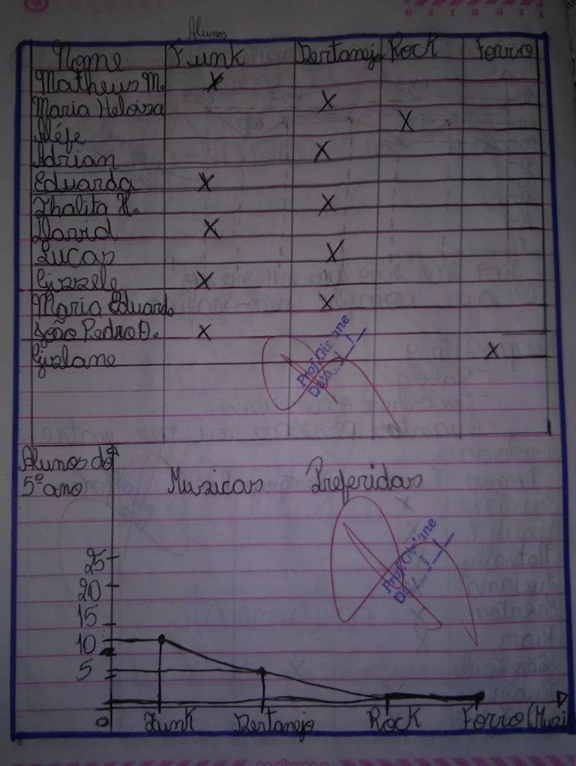 Alunos
Nome Funk Sertanejo Rock Forro
Matheus M. X
Maria Heloisa X
Aléfe X
Adrian X
Eduarda X
Thalita K. X
David X
Lucas X
Gizzele X
Maria Eduard X
João Pedro O. X
Gislane X
Prof. Gislane
Alunos do
5º ano
Muzicas Preferidas
25
20
15
10
5
0
Funk Sertanejo Rock Forro (Muzi